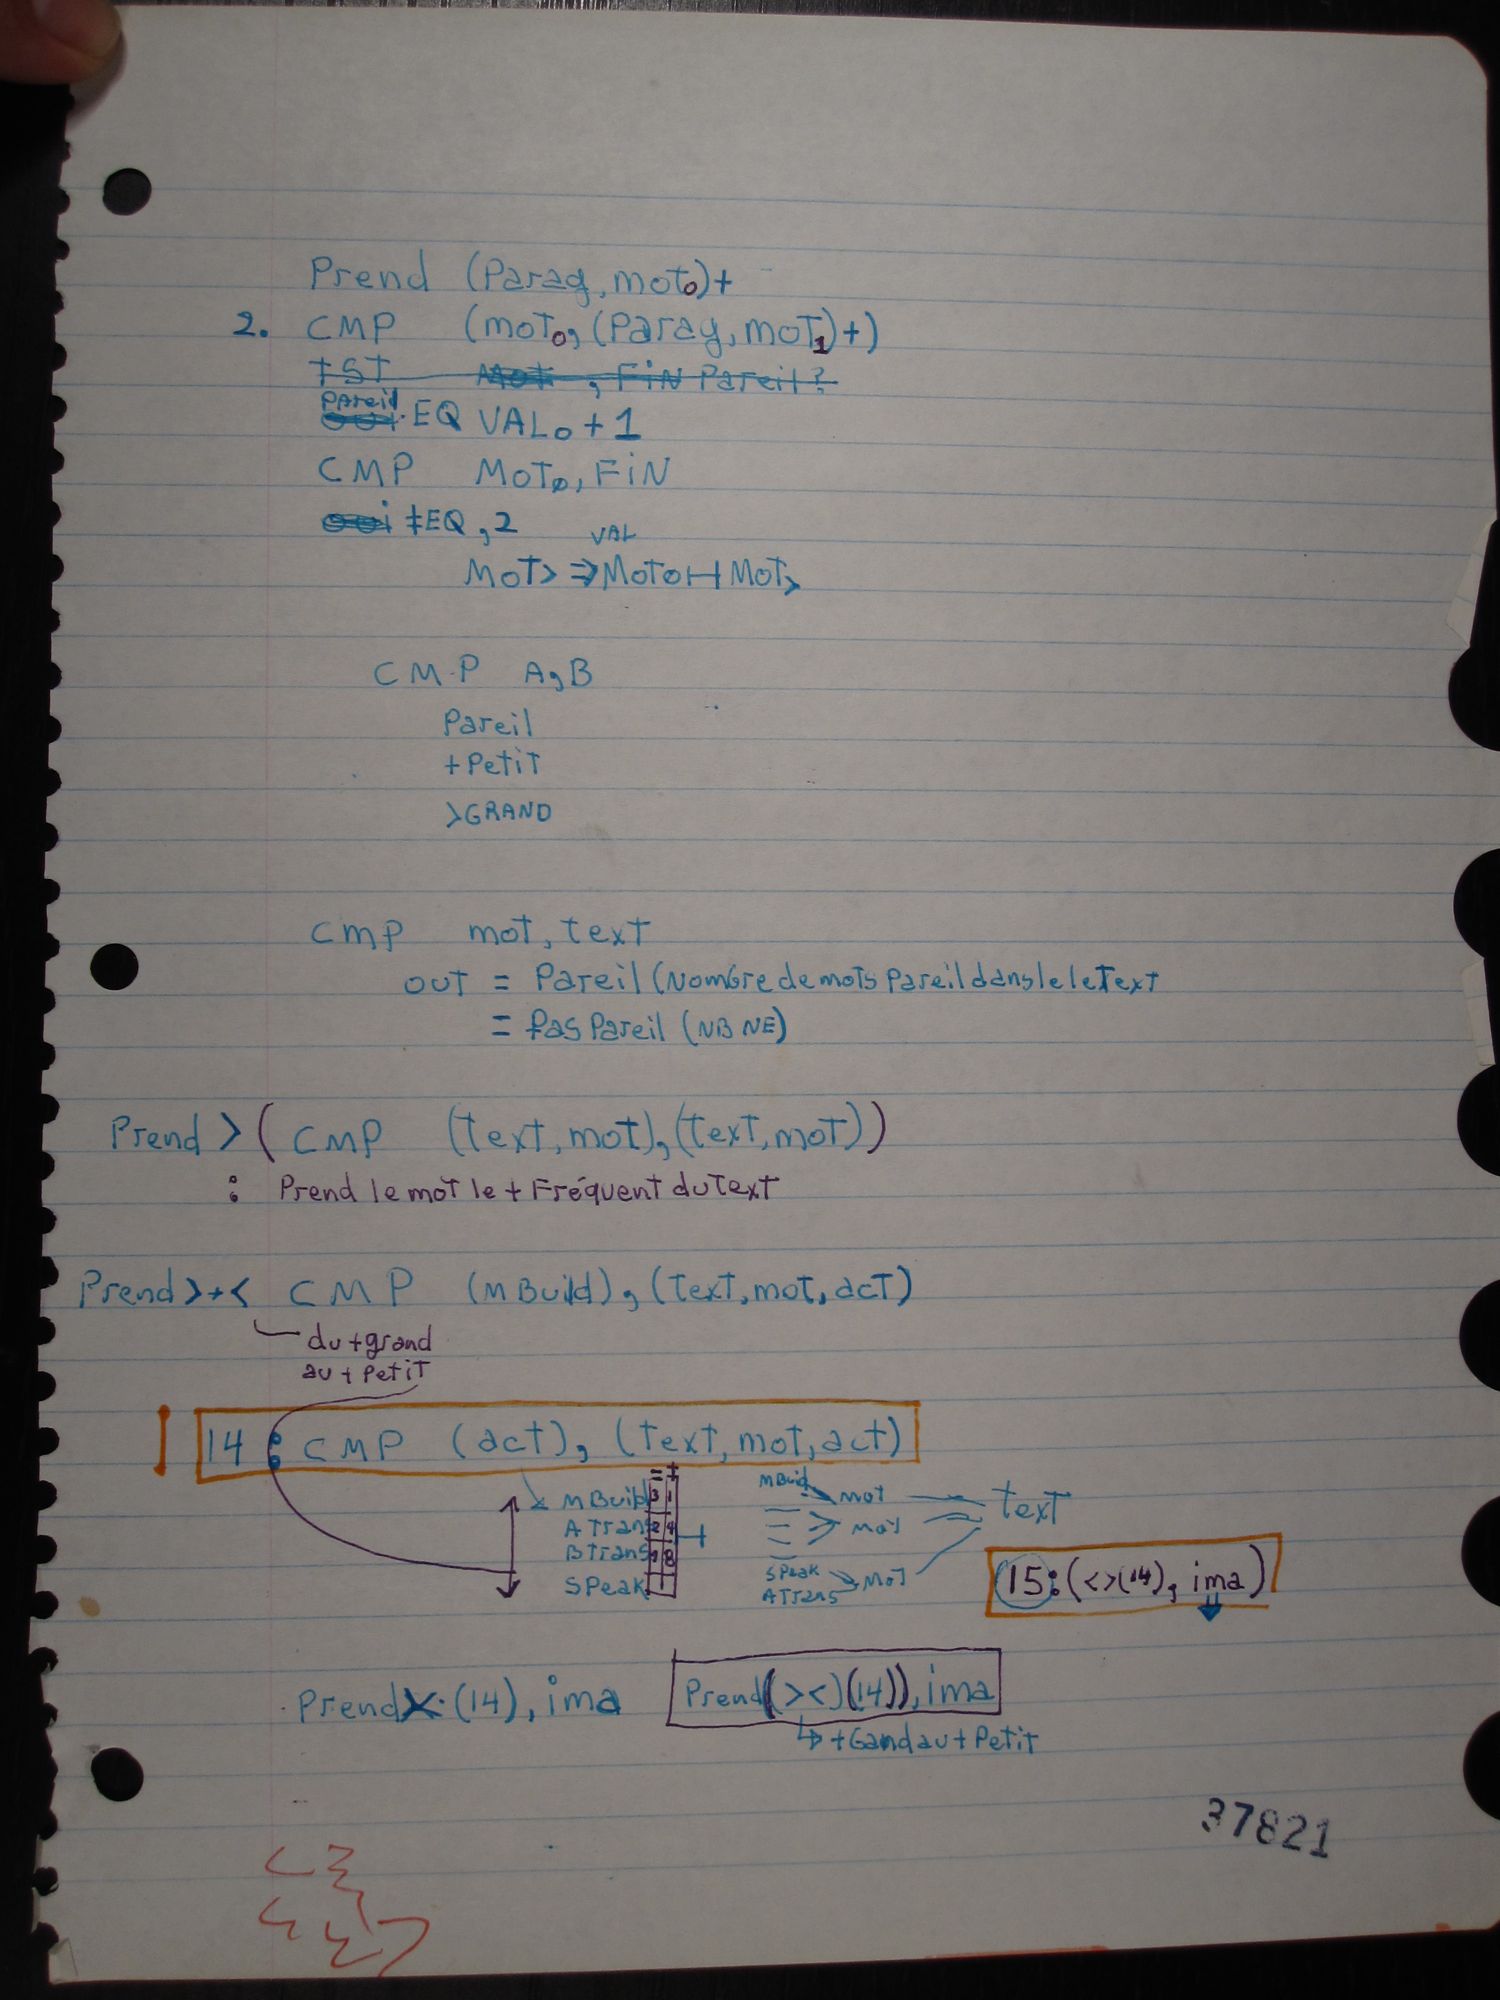 Prend (Parag, mot0)+
2. CMP (mot0, (Parag, mot1)+)
TST Mot , FiN Pareil?
Pareil
EQ VAL0 + 1
CMP MOT0, FiN
oui ≠EQ, 2
VAL
MOT> ⇒ MOTO MOT>
CMP A, B
Pareil
+Petit
>GRAND
CMP mot, text
OUT = Pareil (Nombre de mots Pareil dans le le Text
= Pas Pareil (NB NE)
Prend > ( CMP (text, mot), (text, mot))
: Prend le mot le + Fréquent du Text
Prend >+< CMP (MBuild), (text, mot, act)
du + grand
au + Petit
14 : CMP (act), (text, mot, act)
= +
MBuild 3 1
ATrans 2 4
BTrans 8
SPeak
MBuid mot
mot
SPeak mot
ATrans
text
15: (<>(14), ima)
Prend (14), ima
Prend(><)(14)), ima
+Gand au + Petit
37821